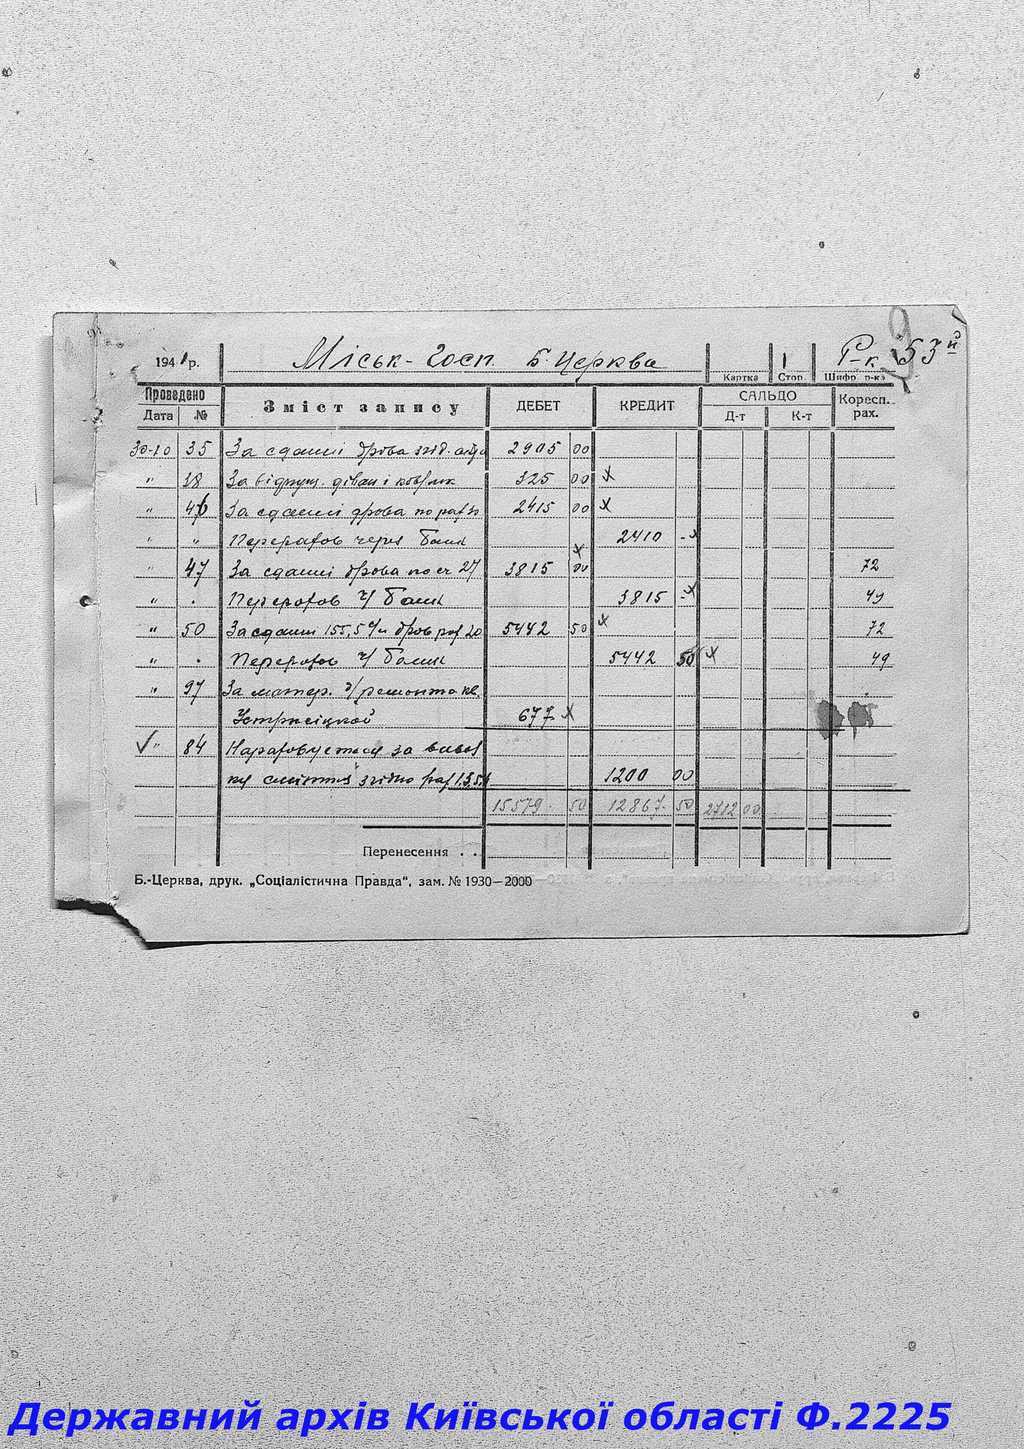 9
1941 р. Міськ-госп. Б. Церква Картка 1 Стор. Р-к 53й Шифр р-ка
Проведено Дата № Зміст запису ДЕБЕТ КРЕДИТ САЛЬДО Д-т К-т Коресп. рах.
30-10 35 За сданні дрова згід. 2905 00
" 38 За відпущ. діван і 325 00 х
" 46 За сданні дрова по рах 2415 00 х
" " Перерахов через банк 2410 - х
" 47 За сданні дрова по сч 27 3815 00 х 72
" . Перерахов ч/ банк 3815 - х 49
" 50 За сданні 155,5 дров рах 20 5442 50 х 72
" . Перерахов ч/ банк 5442 50 х 49
" 97 За матер. д/ ремонта кв.
677 х
✓ " 84 Нараховується за вивоз
ку сміття згідно рах 1200 00
15579 50 12867 50 2712 00
Перенесення . .
Б.-Церква, друк. „Соціалістична Правда“, зам. № 1930—2000
Державний архів Київської області Ф.2225